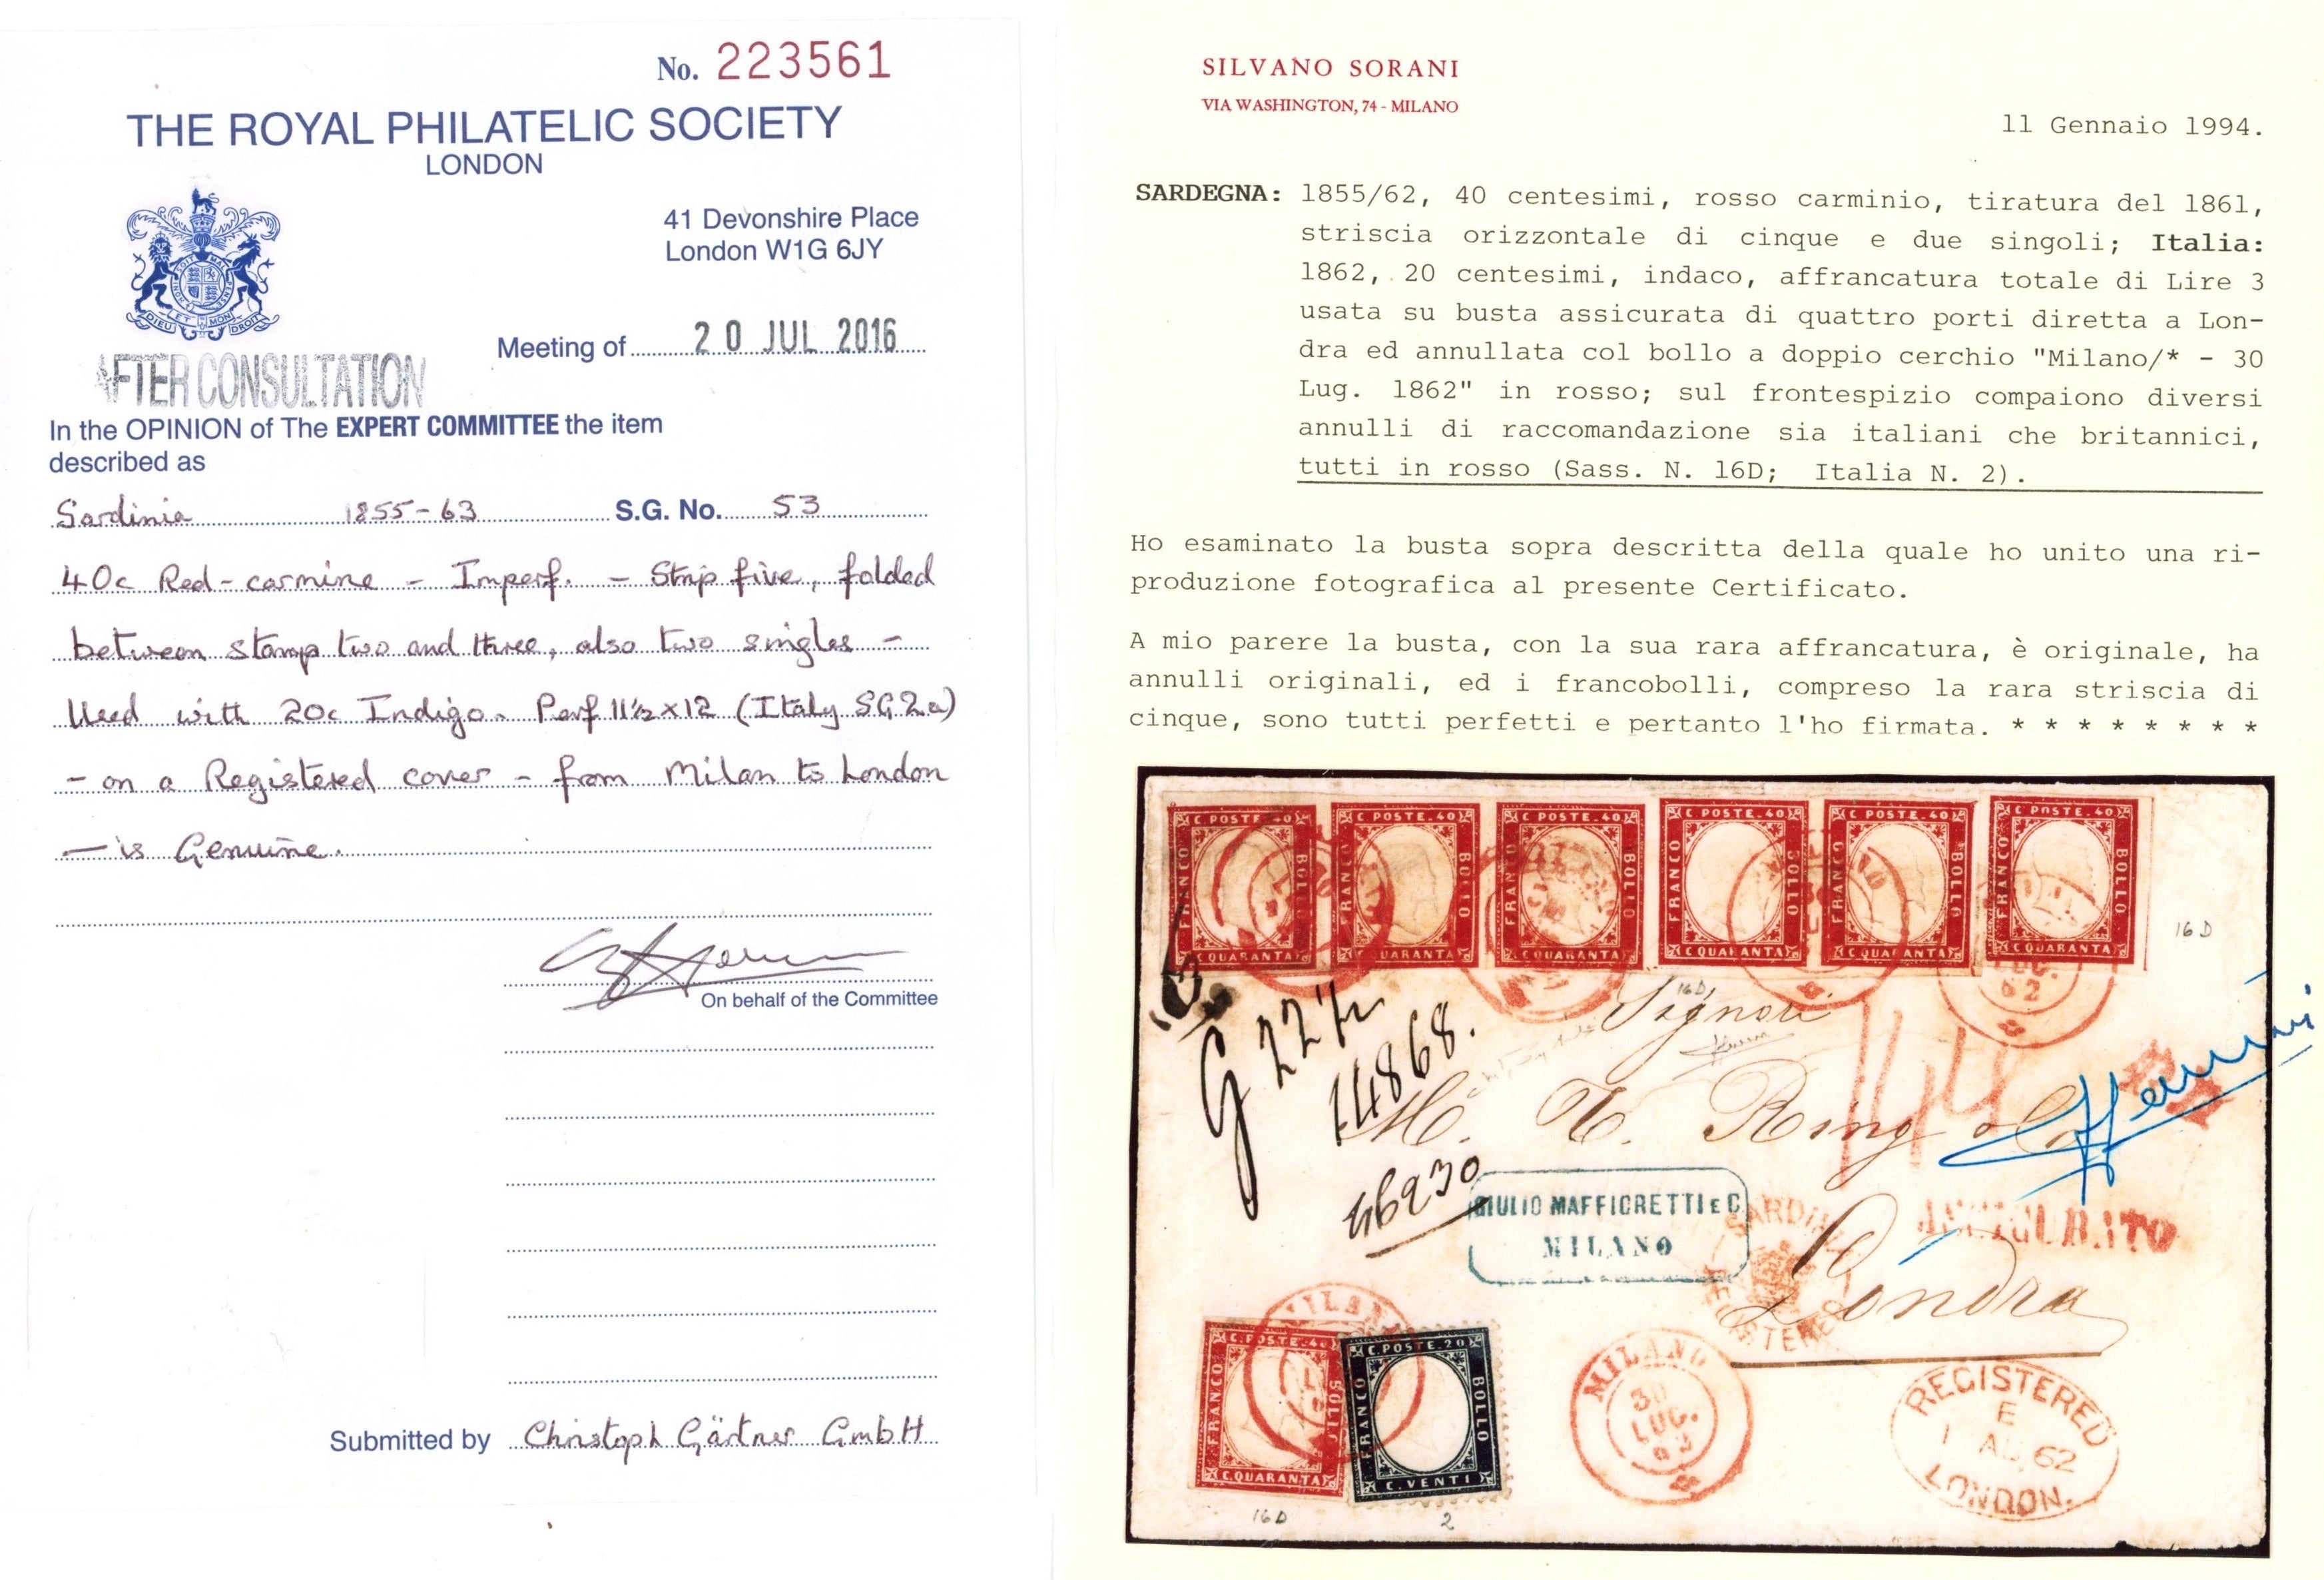 No. 223561
THE ROYAL PHILATELIC SOCIETY
LONDON
41 Devonshire Place
London W1G 6JY
DIEU ET MON DROIT
Meeting of 20 JUL 2016
AFTER CONSULTATION
In the OPINION of The EXPERT COMMITTEE the item
described as
Sardinia 1855-63 S.G. No. 53
40c Red-carmine - Imperf. - Strip five, folded
between stamp two and three, also two singles -
Used with 20c Indigo. Perf 11½x12 (Italy SG2a)
- on a Registered cover - from Milan to London
- is Genuine.
On behalf of the Committee
Submitted by Christoph Gärtner GmbH
SILVANO SORANI
VIA WASHINGTON, 74 - MILANO
11 Gennaio 1994.
SARDEGNA: 1855/62, 40 centesimi, rosso carminio, tiratura del 1861,
striscia orizzontale di cinque e due singoli; Italia:
1862, 20 centesimi, indaco, affrancatura totale di Lire 3
usata su busta assicurata di quattro porti diretta a Lon-
dra ed annullata col bollo a doppio cerchio "Milano/* - 30
Lug. 1862" in rosso; sul frontespizio compaiono diversi
annulli di raccomandazione sia italiani che britannici,
tutti in rosso (Sass. N. 16D; Italia N. 2).
Ho esaminato la busta sopra descritta della quale ho unito una ri-
produzione fotografica al presente Certificato.
A mio parere la busta, con la sua rara affrancatura, è originale, ha
annulli originali, ed i francobolli, compreso la rara striscia di
cinque, sono tutti perfetti e pertanto l'ho firmata. * * * * * * * *
C POSTE. 40 C POSTE. 40 C POSTE. 40 C POSTE. 40 C POSTE. 40 C POSTE. 40
FRANCO BOLLO FRANCO BOLLO FRANCO BOLLO FRANCO BOLLO FRANCO BOLLO FRANCO BOLLO
C QUARANTA C QUARANTA C QUARANTA C QUARANTA C QUARANTA C QUARANTA
16 D
LUG.
62
16 D
Signori
14868.
Ring
46230
GIULIO MAFFIORETTI E C
MILANO
ASSICURATO
SARDINIA
REGISTERED
Londra
MILANO
C. POSTE. 40
FRANCO BOLLO
C. QUARANTA
C. POSTE. 20
FRANCO BOLLO
C. VENTI
16 D
2
MILANO
30
LUG.
62
REGISTERED
E
1 AU 62
LONDON.